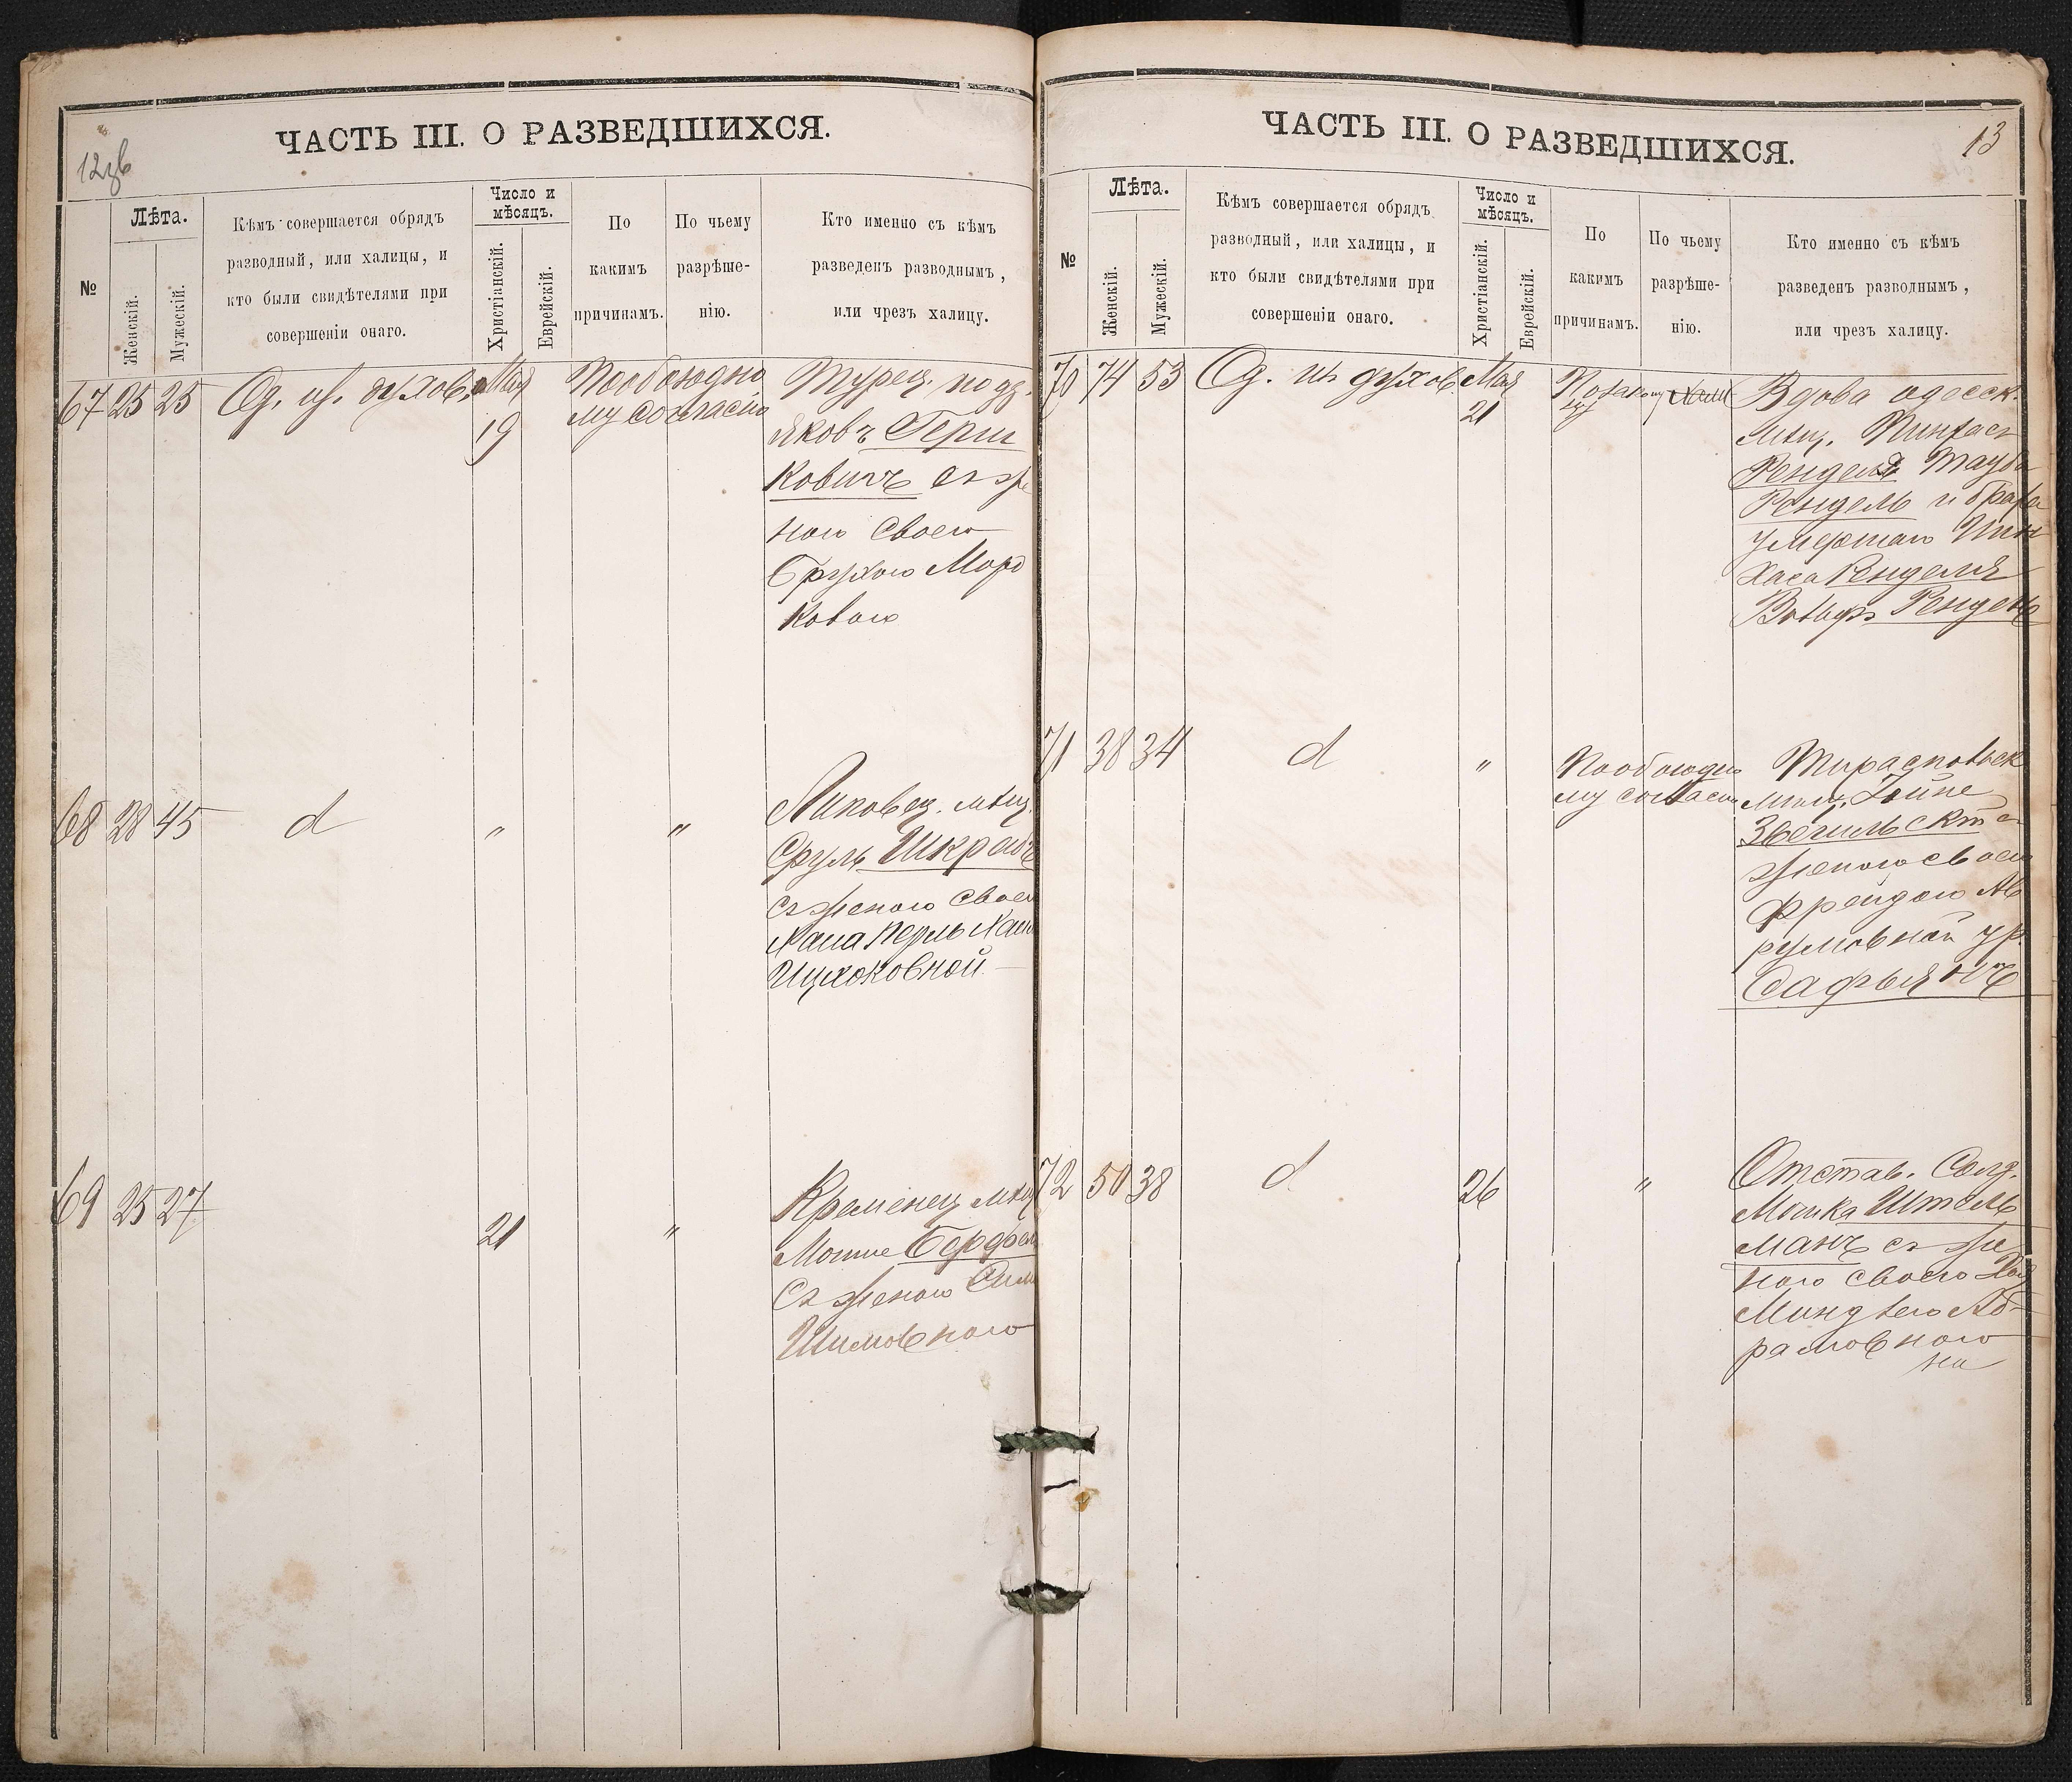 ЧАСТЬ III. О РАЗВЕДШИХСЯ.
№
Лѣта.
Женскій.
Мужескій.
Кѣмъ совершается обрядъ
разводный, или халицы, и
кто были свидѣтелями при
совершеніи онаго.
Число и
мѣсяцъ.
Христіанскій.
Еврейскій.
По
какимъ
причинамъ.
По чьему
разрѣше-
нію.
Кто именно съ кѣмъ
разведенъ разводнымъ,
или чрезъ халицу.
67 25 25 Од. духов. Мая
19
Пообоюдно
му согласію
Турец. подд.
Яковъ Герш
ковичъ съ же
ною своею
Брухою Морд
ковою
68 28 45 d " "
мѣщ.
Сруль Шкрабъ
съ женою своею
Хана Перль
Ицхоковной
69 25 27 21 "
Кременец. мѣщ.
Мошие
съ женою
Шимовною
ЧАСТЬ III. О РАЗВЕДШИХСЯ.
13
№
Лѣта.
Женскій.
Мужескій.
Кѣмъ совершается обрядъ
разводный, или халицы, и
кто были свидѣтелями при
совершеніи онаго.
Число и
мѣсяцъ.
Христіанскій.
Еврейскій.
По
какимъ
причинамъ.
По чьему
разрѣше-
нію.
Кто именно съ кѣмъ
разведенъ разводнымъ,
или чрезъ халицу.
70 74 53 Од. духов. Мая
21
Вдова одесск.
мѣщ. Пинхаса
Ренделя Тауба
Рендель и брата
умершаго Пин
хаса Ренделя
Вольфъ Рендель
71 38 34 d "
Пообоюдно
му согласію
Тираспольск
мѣщ.
съ
женою своею
Фрейдою Ав
румовной ур.
Сафьянъ
72 50 38 d 26 "
Отстав. Солд.
Мошка Штель
манъ съ же
ною своею Хая
Миндлею Аб-
рамовною